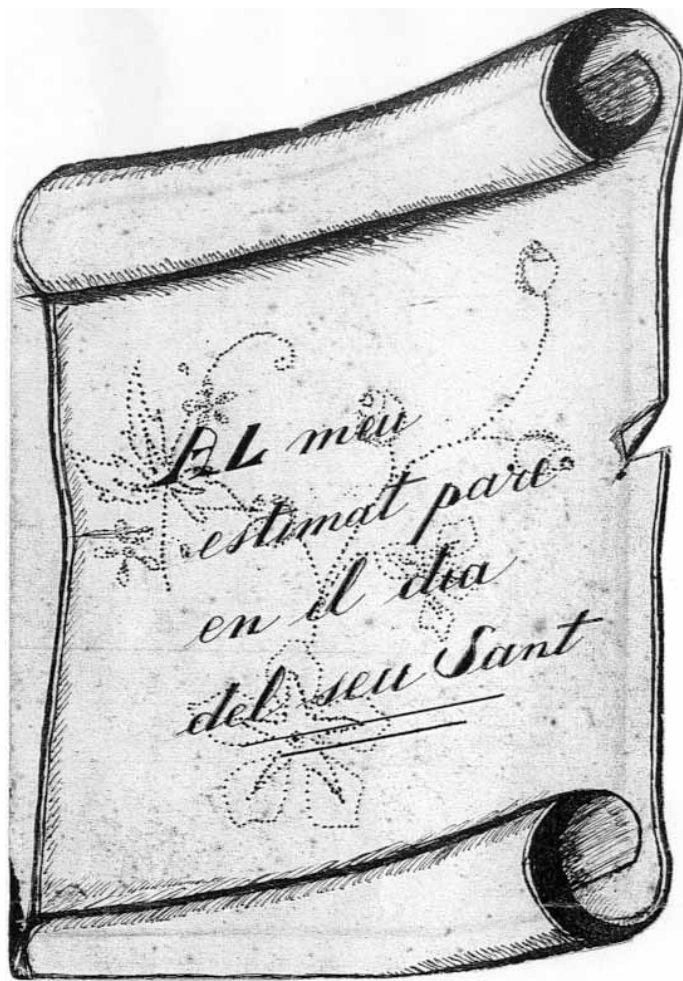 AL meu
estimat pare
en el dia
del seu Sant